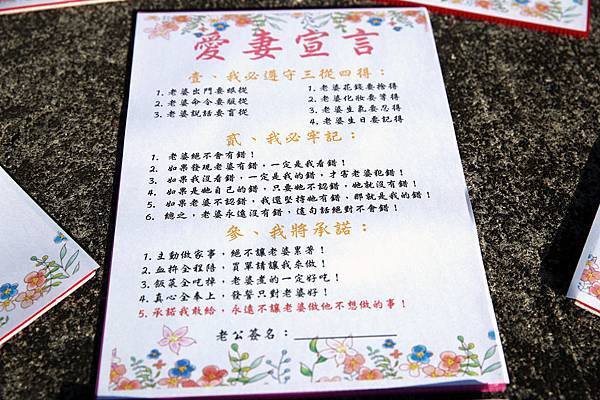 愛妻宣言
壹、我必遵守三從四得：
1. 老婆出門要跟從
2. 老婆命令要服從
3. 老婆說話要盲從
1. 老婆花錢要捨得
2. 老婆化妝要等得
3. 老婆生氣要忍得
4. 老婆生日要記得
貳、我必牢記：
1. 老婆絕不會有錯！
2. 如果發現老婆有錯，一定是我看錯！
3. 如果我沒看錯，一定是我的錯，才害老婆犯錯！
4. 如果是她自己的錯，只要她不認錯，她就沒有錯！
5. 如果老婆不認錯，我還堅持她有錯，那就是我的錯！
6. 總之，老婆永遠沒有錯，這句話絕對不會錯！
參、我將承諾：
1. 主動做家事，絕不讓老婆累著！
2. 血拚全程陪，買單請讓我來做！
3. 飯菜全吃掉，老婆煮的一定好吃！
4. 真心全奉上，發誓只對老婆好！
5. 承諾我敢給，永遠不讓老婆做他不想做的事！
老公簽名：